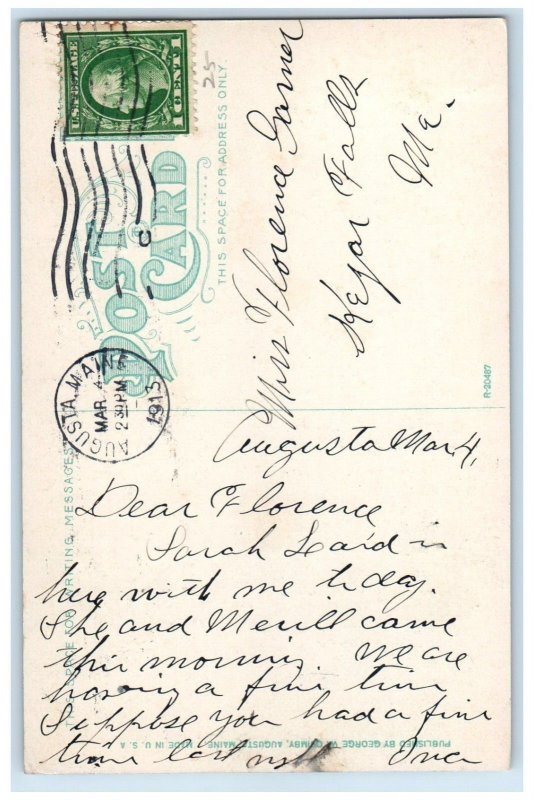 U.S. POSTAGE
1 CENT
25
POST CARD
THIS SPACE FOR ADDRESS ONLY.
AUGUSTA, MAINE
MAR 4
2 30 PM
1913
Miss Florence Garner
Kezar Falls
Me.
R-20487
THIS SPACE FOR WRITING MESSAGES
Augusta Mar 4,
Dear Florence
Sarah Laird is
here with me today.
She and Merrill came
this morning. We are
having a fine time
Suppose you had a fine
time last night Inez
PUBLISHED BY GEORGE W. QUIMBY, AUGUSTA, MAINE. MADE IN U.S.A